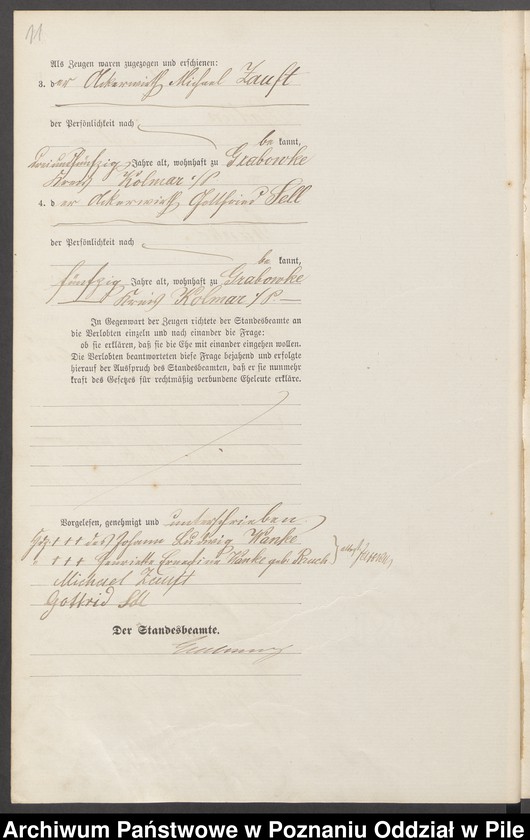 11
Als Zeugen waren zugezogen und erschienen:
3. der Ackerwirth Michael Zauft
der Persönlichkeit nach
be kannt,
dreiundfünfzig Jahre alt, wohnhaft zu Grabowke
Kreis Kolmar i/P.
4. d er Ackerwirth Gottfried Sell
der Persönlichkeit nach
be kannt,
fünfzig Jahre alt, wohnhaft zu Grabowke
Kreis Kolmar i/P.
In Gegenwart der Zeugen richtete der Standesbeamte an
die Verlobten einzeln und nach einander die Frage:
ob sie erklären, daß sie die Ehe mit einander eingehen wollen.
Die Verlobten beantworteten diese Frage bejahend und erfolgte
hierauf der Ausspruch des Standesbeamten, daß er sie nunmehr
kraft des Gesetzes für rechtmäßig verbundene Eheleute erkläre.
Vorgelesen, genehmigt und unterschrieben
+++ des Johann Ludwig Wanke
" +++ Henriette Ernestine Wanke geb.
Michael Zauft
Gottfrid Sell
Der Standesbeamte.
Archiwum Państwowe w Poznaniu Oddział w Pile